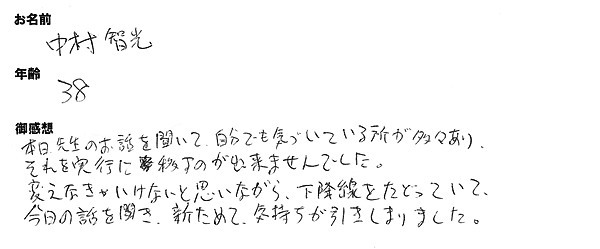 お名前
中村智光
年齢
38
御感想
本日先生のお話を聞いて、自分でも気づいている所が多々あり、
それを実行に移すのが出来ませんでした。
変えなきゃいけないと思いながら、下降線をたどっていて、
今日の話を聞き、新ためて、気持ちが引きしまりました。